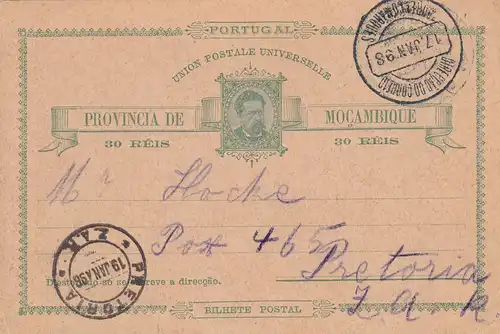 PORTUGAL
UNION POSTALE UNIVERSELLE
PROVINCIA DE MOÇAMBIQUE
30 RÉIS 30 RÉIS
17 JAN 98
Mr Hocke
Pox 465
Pretoria
Z A R
PRETORIA
19 JAN 98
Z.A.R.
D'este lado só se escreve a direcção.
BILHETE POSTAL